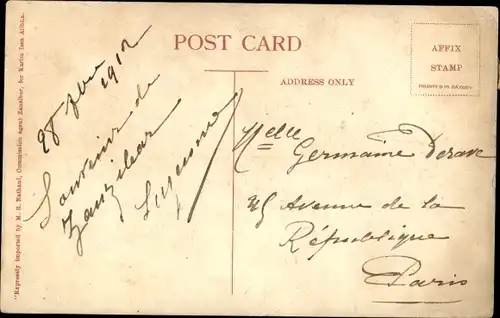 POST CARD
AFFIX
STAMP
PRINTED IN SAXONY
ADDRESS ONLY
"Expressly imported by M. R. Nathani, Commission agent Zanzibar, for Karim Issa
28 1912
Souvenir de
Zanzibar
Melle
Germaine
25 Avenue de la
République
Paris